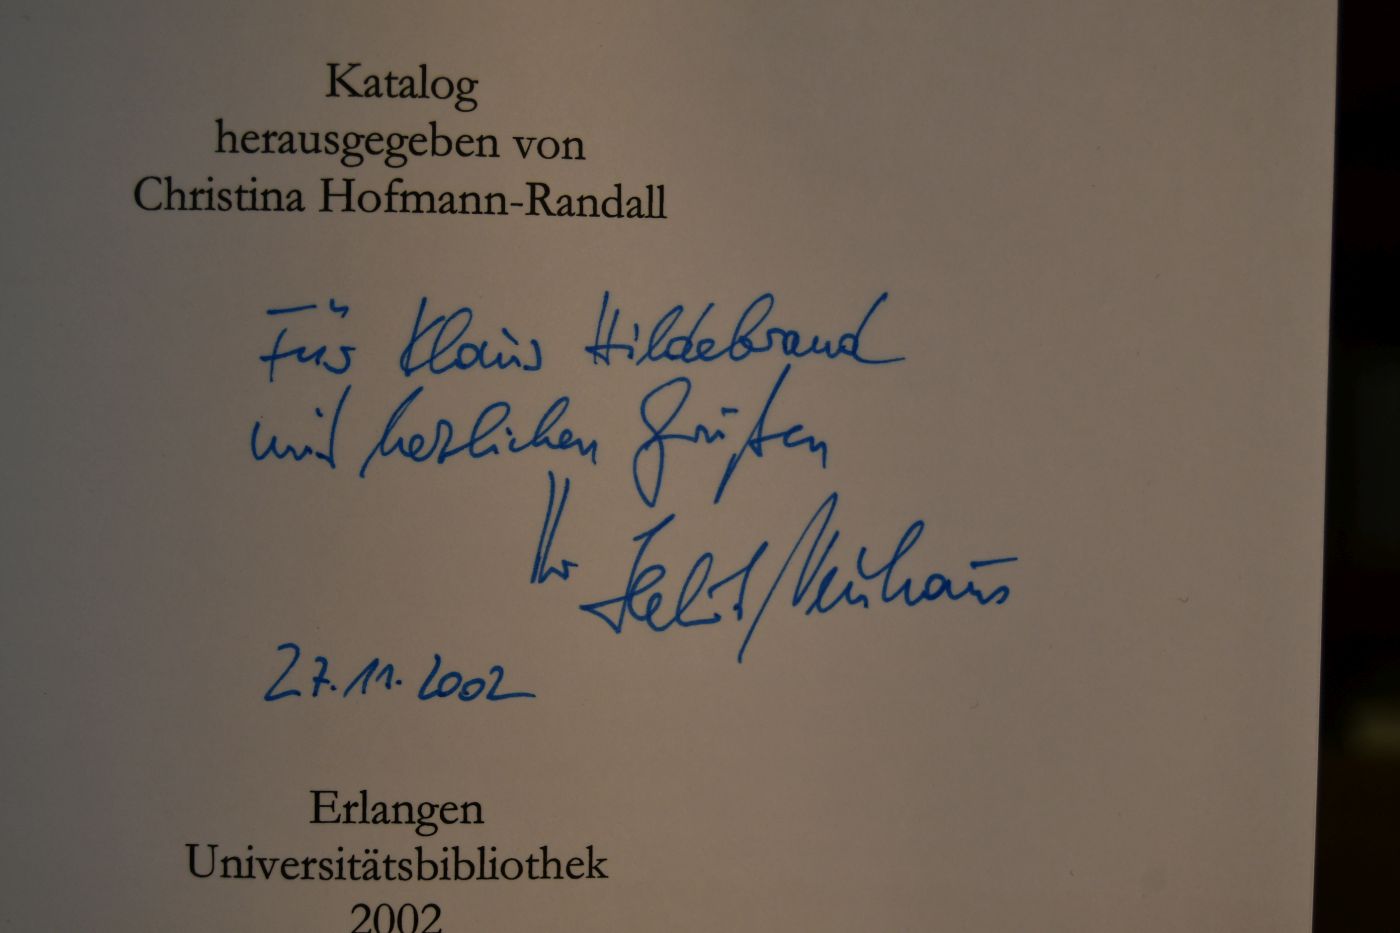 Katalog
herausgegeben von
Christina Hofmann-Randall
Für Klaus Hildebrand
mit herzlichen Grüßen
Ihr Helmut Neuhaus
27.11.2002
Erlangen
Universitätsbibliothek
2002